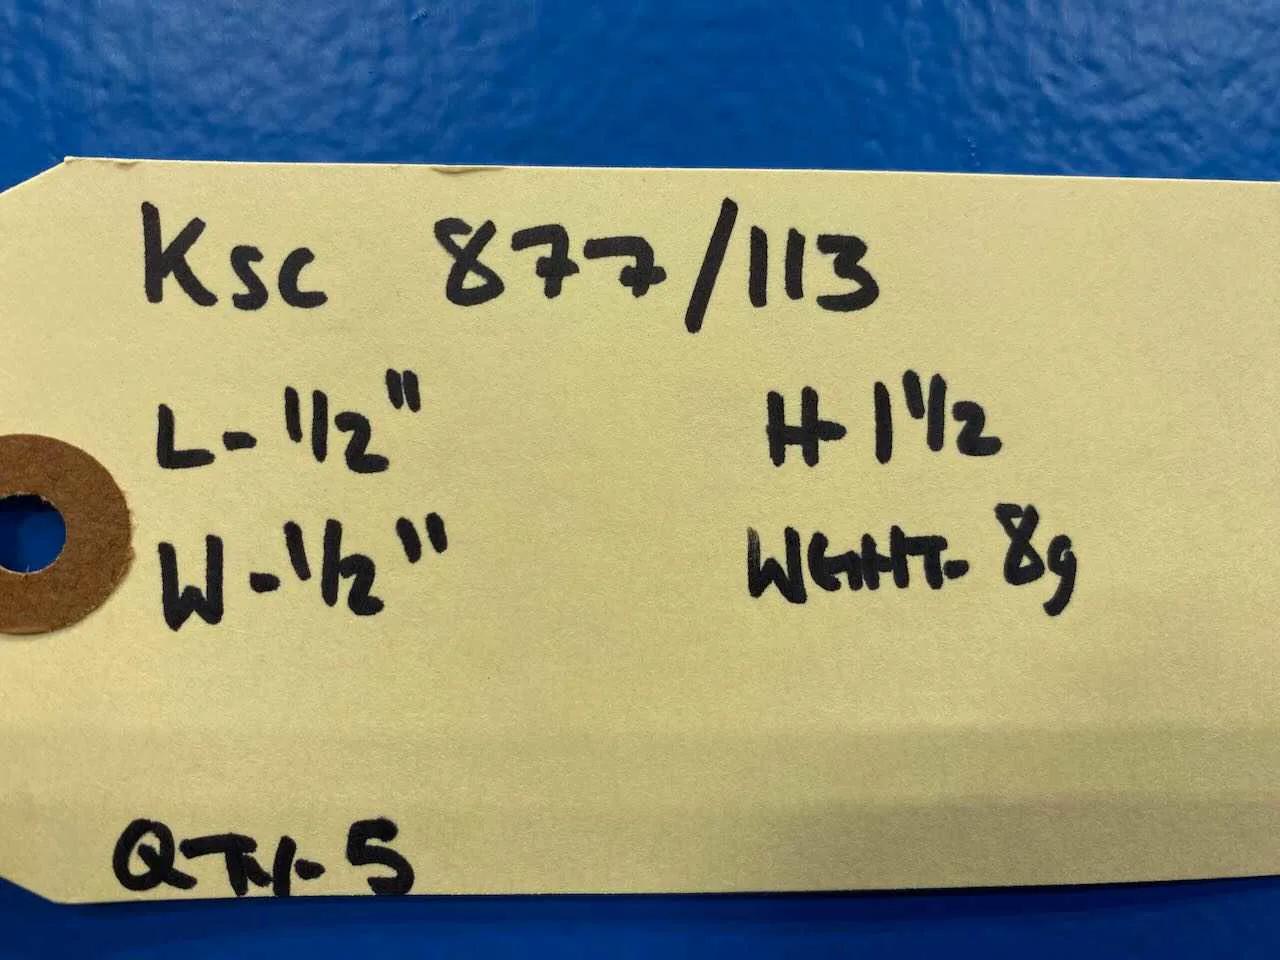 Ksc 877/113
L-1/2" H-1 1/2
W-1/2" WGHT- 8g
QTY- 5